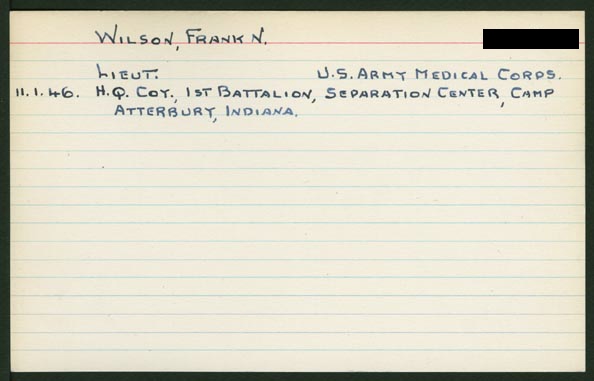 WILSON, FRANK N.
LIEUT. U.S. ARMY MEDICAL CORPS.
11.1.46. H.Q. COY., 1ST BATTALION, SEPARATION CENTER, CAMP
ATTERBURY, INDIANA.